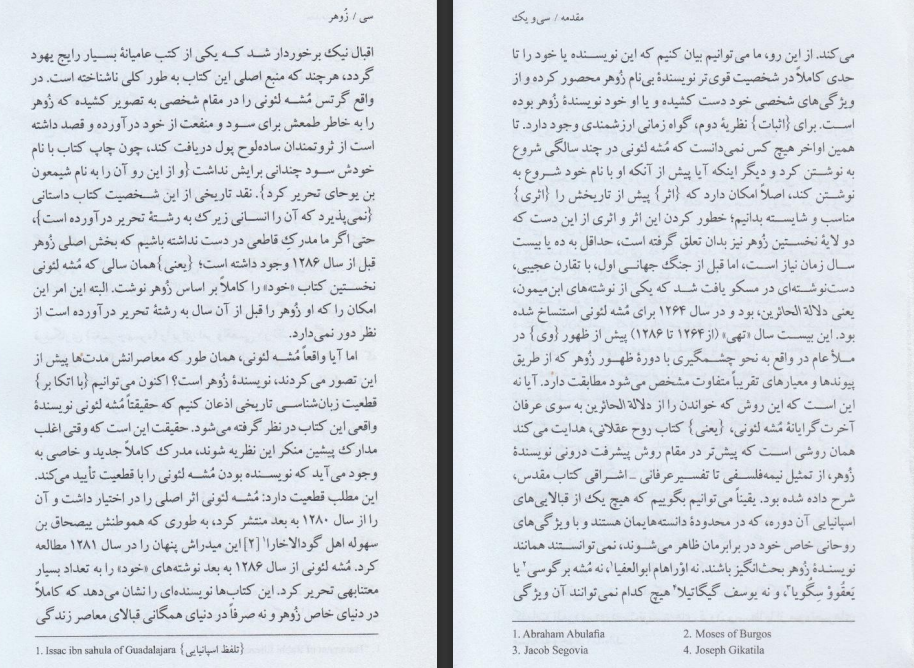 سی / زُوهر
اقبال نیک برخوردار شد که یکی از کتب عامیانهٔ بسیار رایج یهود
گردد، هرچند که منبع اصلی این کتاب به طور کلی ناشناخته است. در
واقع گرتس مُشه لئونی را در مقام شخصی به تصویر کشیده که زُوهر
را به خاطر طمعش برای سود و منفعت از خود درآورده و قصد داشته
است از ثروتمندان ساده‌لوح پول دریافت کند، چون چاپ کتاب با نام
خودش سود چندانی برایش نداشت {و از این رو آن را به نام شیمعون
بن یوحای تحریر کرد}. نقد تاریخی از این شخصیت کتاب داستانی
{نمی‌پذیرد که آن را انسانی زیرک به رشتهٔ تحریر درآورده است}،
حتی اگر ما مدرکِ قاطعی در دست نداشته باشیم که بخش اصلی زُوهر
قبل از سال ۱۲۸۶ وجود داشته است؛ {یعنی} همان سالی که مُشه لئونی
نخستین کتاب «خود» را کاملاً بر اساس زُوهر نوشت. البته این امر این
امکان را که او زُوهر را قبل از آن سال به رشتهٔ تحریر درآورده است از
نظر دور نمی‌دارد.
اما آیا واقعاً مُشه لئونی، همان طور که معاصرانش مدت‌ها پیش از
این تصور می‌کردند، نویسندهٔ زُوهر است؟ اکنون می‌توانیم {با اتکا بر}
قطعیت زبان‌شناسی تاریخی اذعان کنیم که حقیقتاً مُشه لئونی نویسندهٔ
واقعی این کتاب در نظر گرفته می‌شود. حقیقت این است که وقتی اغلب
مدارک پیشین منکر این نظریه شوند، مدرک کاملاً جدید و خاصی به
وجود می‌آید که نویسنده بودن مُشه لئونی را با قطعیت تأیید می‌کند.
این مطلب قطعیت دارد: مُشه لئونی اثر اصلی را در اختیار داشت و آن
را از سال ۱۲۸۰ به بعد منتشر کرد، به طوری که هموطنش ییصحاق بن
سهوله اهل گودالاخارا۱ [۲] این میدراش پنهان را در سال ۱۲۸۱ مطالعه
کرد. مُشه لئونی از سال ۱۲۸۶ به بعد نوشته‌های «خود» را به تعداد بسیار
معتنابهی تحریر کرد. این کتاب‌ها نویسنده‌ای را نشان می‌دهد که کاملاً
در دنیای خاص زُوهر و نه صرفاً در دنیای همگانی قبالای معاصر زندگی
1. Issac ibn sahula of Guadalajara {تلفظ اسپانیایی}
مقدمه / سی‌و‌یک
می‌کند. از این رو، ما می‌توانیم بیان کنیم که این نویسنده یا خود را تا
حدی کاملاً در شخصیت قوی‌تر نویسندهٔ بی‌نام زُوهر محصور کرده و از
ویژگی‌های شخصی خود دست کشیده و یا او خود نویسندهٔ زُوهر بوده
است. برای {اثبات} نظریهٔ دوم، گواه زمانی ارزشمندی وجود دارد. تا
همین اواخر هیچ کس نمی‌دانست که مُشه لئونی در چند سالگی شروع
به نوشتن کرد و دیگر اینکه آیا پیش از آنکه او با نام خود شروع به
نوشتن کند، اصلاً امکان دارد که {اثر} پیش از تاریخش را {اثری}
مناسب و شایسته بدانیم؛ خطور کردن این اثر و اثری از این دست که
دو لایهٔ نخستین زُوهر نیز بدان تعلق گرفته است، حداقل به ده یا بیست
سال زمان نیاز است، اما قبل از جنگ جهانی اول، با تقارن عجیبی،
دست‌نوشته‌ای در مسکو یافت شد که یکی از نوشته‌های ابن‌میمون،
یعنی دلالة الحائرین، بود و در سال ۱۲۶۴ برای مُشه لئونی استنساخ شده
بود. این بیست سال «تهی» (از ۱۲۶۴ تا ۱۲۸۶) پیش از ظهور {وی} در
ملأ عام در واقع به نحو چشمگیری با دورهٔ ظهور زُوهر که از طریق
پیوندها و معیارهای تقریباً متفاوت مشخص می‌شود مطابقت دارد. آیا نه
این است که این روش که خواندن را از دلالة الحائرین به سوی عرفان
آخرت‌گرایانهٔ مُشه لئونی، {یعنی} کتاب روح عقلانی، هدایت می‌کند
همان روشی است که پیش‌تر در مقام روش پیشرفت درونی نویسندهٔ
زُوهر، از تمثیل نیمه‌فلسفی تا تفسیر عرفانی ـ اشراقی کتاب مقدس،
شرح داده شده بود. یقیناً می‌توانیم بگوییم که هیچ یک از قبالایی‌های
اسپانیایی آن دوره، که در محدودهٔ دانسته‌هایمان هستند و با ویژگی‌های
روحانی خاص خود در برابرمان ظاهر می‌شوند، نمی‌توانستند همانند
نویسندهٔ زُوهر بحث‌انگیز باشند. نه اوراهام ابوالعفیا۱، نه مُشه برگوسی۲ یا
یَعقُووْ سِگُویا۳، و نه یوسف گیگاتیلا۴ هیچ کدام نمی‌توانند آن ویژگی
1. Abraham Abulafia
2. Moses of Burgos
3. Jacob Segovia
4. Joseph Gikatila